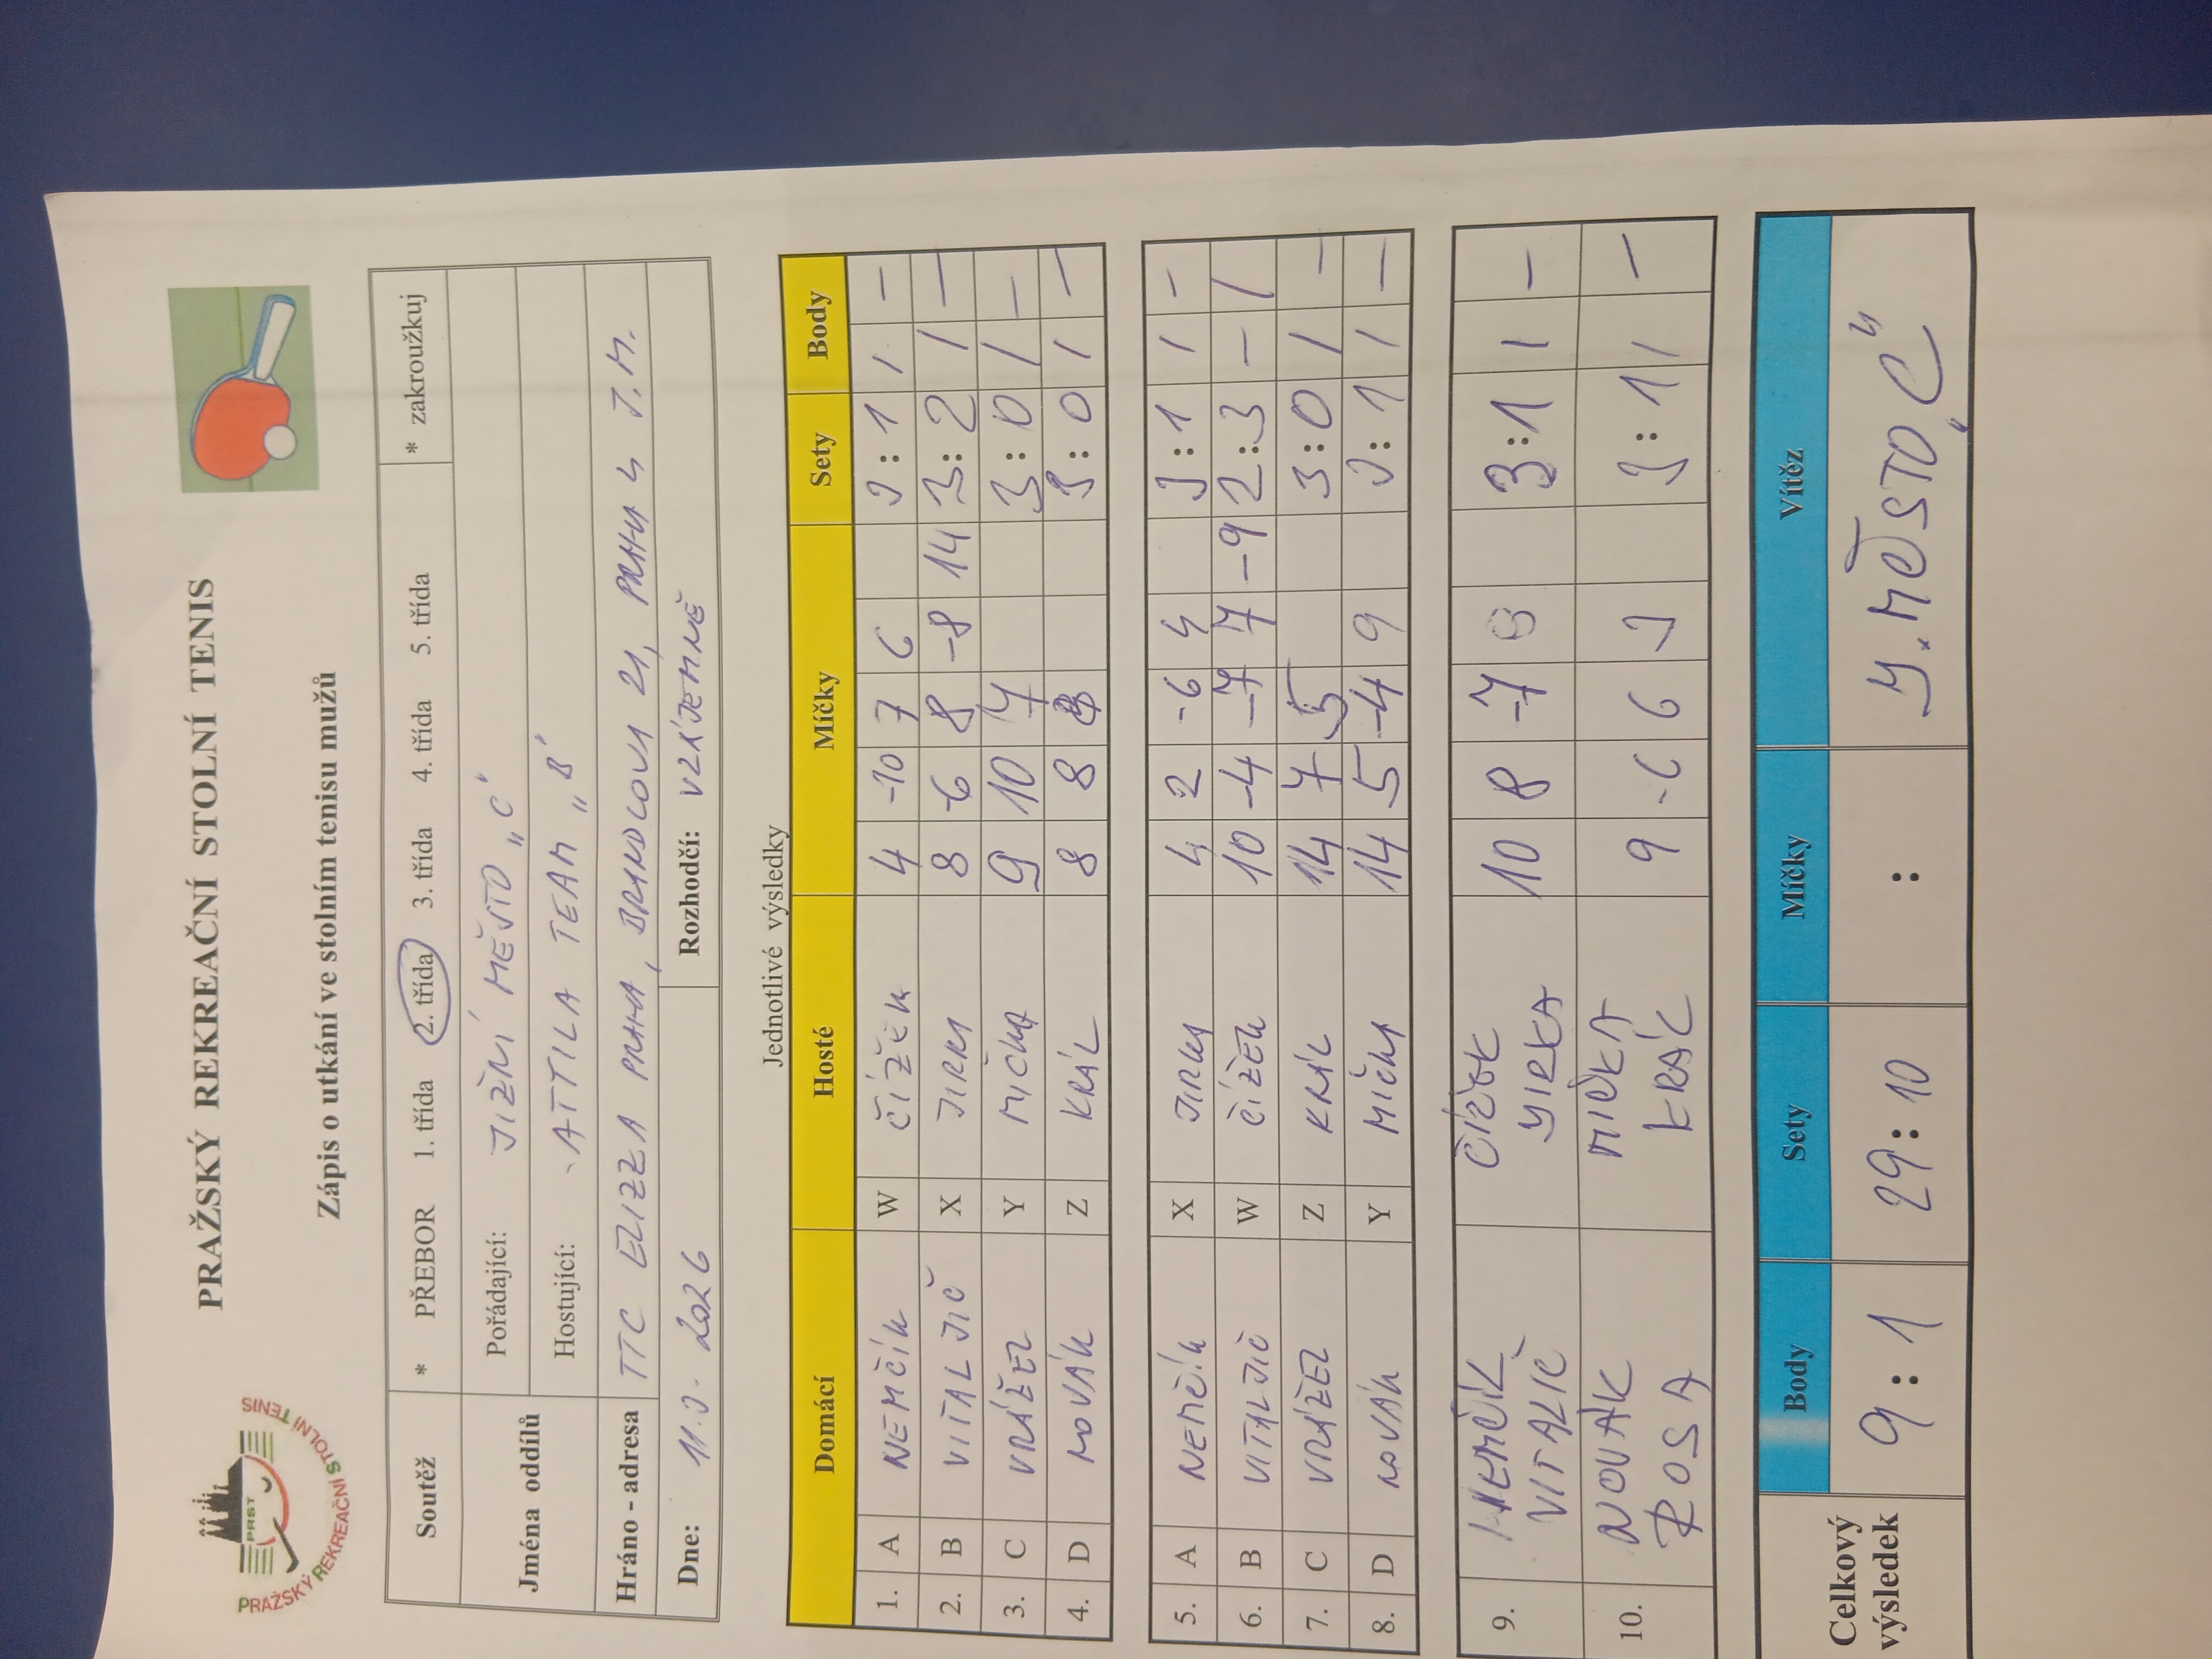 PRAŽSKÝ REKREAČNÍ STOLNÍ TENIS
PRST
PRAŽSKÝ REKREAČNÍ STOLNÍ TENIS
Zápis o utkání ve stolním tenisu mužů
Soutěž * PŘEBOR 1. třída 2. třída 3. třída 4. třída 5. třída * zakroužkuj
Jména oddílů
Pořádající: JIŽNÍ MĚSTO „C"
Hostující: ATTILA TEAM „B"
Hráno - adresa TTC ELIZZA PRAHA, BRANDLOVA 21, PRAHA 4 J.M.
Dne: 11.3. 2026 Rozhodčí: VZÁJEMNĚ
Jednotlivé výsledky
Domácí Hosté Míčky Sety Body
1. A NEMČÍK W ČÍŽEK 4 -10 7 6 3 : 1 1 –
2. B VITALJIČ X JIRKA 8 -6 8 -8 14 3 : 2 1 –
3. C VRÁŽEL Y MIČKA 9 10 7 3 : 0 1 –
4. D NOVÁK Z KRÁL 8 8 3 : 0 1 –
5. A NEMČÍK X JIRKA 4 2 -6 4 3 : 1 1 –
6. B VITALJIČ W ČÍŽEK 10 -4 -7 7 -9 2 : 3 – 1
7. C VRÁŽEL Z KRÁL 14 7 5 3 : 0 1 –
8. D NOVÁK Y MIČKA 14 5 -4 9 3 : 1 1 –
9. NEMČÍK ČÍŽEK 10 8 -7 8 3 : 1 1 –
VITALIČ YIRKA
10. NOVAK MIČKA 9 -6 6 3 3 : 1 1 –
ROSA KRÁL
Celkový výsledek
Body Sety Míčky Vítěz
9 : 1 29 : 10 : Y. MĚSTO „C"